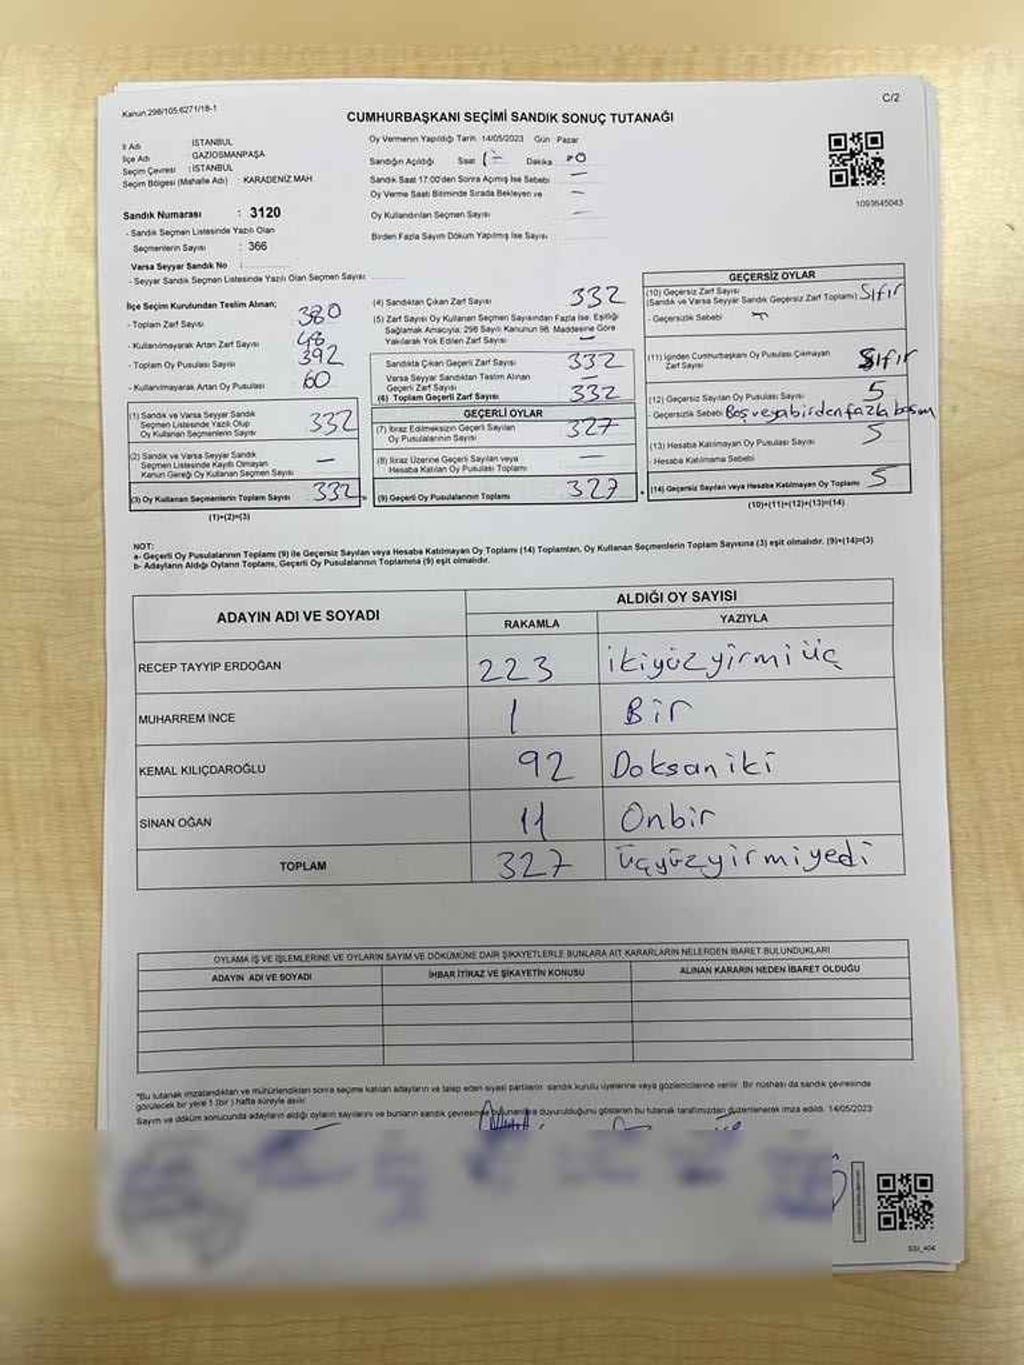 Kanun:298/105.6271/18-1
C/2
CUMHURBAŞKANI SEÇİMİ SANDIK SONUÇ TUTANAĞI
İl Adı : İSTANBUL
İlçe Adı : GAZİOSMANPAŞA
Seçim Çevresi : İSTANBUL
Seçim Bölgesi (Mahalle Adı) : KARADENİZ MAH.
Sandık Numarası : 3120
- Sandık Seçmen Listesinde Yazılı Olan
Seçmenlerin Sayısı : 366
Varsa Seyyar Sandık No :
- Seyyar Sandık Seçmen Listesinde Yazılı Olan Seçmen Sayısı
Oy Vermenin Yapıldığı Tarih 14/05/2023 Gün Pazar
Sandığın Açıldığı Saat Dakika
Sandık Saat 17:00'den Sonra Açmış İse Sebebi —
Oy Verme Saati Bitiminde Sırada Bekleyen ve —
Oy Kullandırılan Seçmen Sayısı —
Birden Fazla Sayım Döküm Yapılmış İse Sayısı
1093645043
İlçe Seçim Kurulundan Teslim Alınan;
- Toplam Zarf Sayısı 380
- Kullanılmayarak Artan Zarf Sayısı 48
- Toplam Oy Pusulası Sayısı 392
- Kullanılmayarak Artan Oy Pusulası 60
(1) Sandık ve Varsa Seyyar Sandık
Seçmen Listesinde Yazılı Olup
Oy Kullanan Seçmenlerin Sayısı 332
(2) Sandık ve Varsa Seyyar Sandık
Seçmen Listesinde Kayıtlı Olmayan
Kanun Gereği Oy Kullanan Seçmen Sayısı —
(3) Oy Kullanan Seçmenlerin Toplam Sayısı 332
(1)+(2)=(3)
(4) Sandıktan Çıkan Zarf Sayısı 332
(5) Zarf Sayısı Oy Kullanan Seçmen Sayısından Fazla İse, Eşitliği
Sağlamak Amacıyla, 298 Sayılı Kanunun 98. Maddesine Göre
Yakılarak Yok Edilen Zarf Sayısı —
Sandıkta Çıkan Geçerli Zarf Sayısı 332
Varsa Seyyar Sandıktan Teslim Alınan
Geçerli Zarf Sayısı —
(6) Toplam Geçerli Zarf Sayısı 332
GEÇERLİ OYLAR
(7) İtiraz Edilmeksizin Geçerli Sayılan
Oy Pusulalarının Sayısı 327
(8) İtiraz Üzerine Geçerli Sayılan veya
Hesaba Katılan Oy Pusulası Toplamı —
(9) Geçerli Oy Pusulalarının Toplamı 327
GEÇERSİZ OYLAR
(10) Geçersiz Zarf Sayısı
(Sandık ve Varsa Seyyar Sandık Geçersiz Zarf Toplamı) Sıfır
- Geçersizlik Sebebi
(11) İçinden Cumhurbaşkanı Oy Pusulası Çıkmayan
Zarf Sayısı Sıfır
(12) Geçersiz Sayılan Oy Pusulası Sayısı 5
- Geçersizlik Sebebi Boş veya birden fazla basım
(13) Hesaba Katılmayan Oy Pusulası Sayısı 5
- Hesaba Katılmama Sebebi
(14) Geçersiz Sayılan veya Hesaba Katılmayan Oy Toplamı 5
(10)+(11)+(12)+(13)=(14)
NOT:
a- Geçerli Oy Pusulalarının Toplamı (9) ile Geçersiz Sayılan veya Hesaba Katılmayan Oy Toplamı (14) Toplamları, Oy Kullanan Seçmenlerin Toplam Sayısına (3) eşit olmalıdır. (9)+(14)=(3)
b- Adayların Aldığı Oyların Toplamı, Geçerli Oy Pusulalarının Toplamına (9) eşit olmalıdır.
ADAYIN ADI VE SOYADI
ALDIĞI OY SAYISI
RAKAMLA YAZIYLA
RECEP TAYYİP ERDOĞAN 223 ikiyüzyirmiüç
MUHARREM İNCE 1 Bir
KEMAL KILIÇDAROĞLU 92 Doksaniki
SİNAN OĞAN 11 Onbir
TOPLAM 327 üçyüzyirmiyedi
OYLAMA İŞ VE İŞLEMLERİNE VE OYLARIN SAYIM VE DÖKÜMÜNE DAİR ŞİKAYETLERLE BUNLARA AİT KARARLARIN NELERDEN İBARET BULUNDUKLARI
ADAYIN ADI VE SOYADI İHBAR İTİRAZ VE ŞİKAYETİN KONUSU ALINAN KARARIN NEDEN İBARET OLDUĞU
*Bu tutanak imzalandıktan ve mühürlendikten sonra seçime katılan adayların ve talep eden siyasi partilerin sandık kurulu üyelerine veya gözlemcilerine verilir. Bir nüshası da sandık çevresinde
görülecek bir yere 1 (bir) hafta süreyle asılır.
Sayım ve döküm sonucunda adayların aldığı oyların sayılarını ve bunların sandık çevresinde bulunanlara duyurulduğunu gösteren bu tutanak tarafımızdan düzenlenerek imza edildi. 14/05/2023
SSI_404